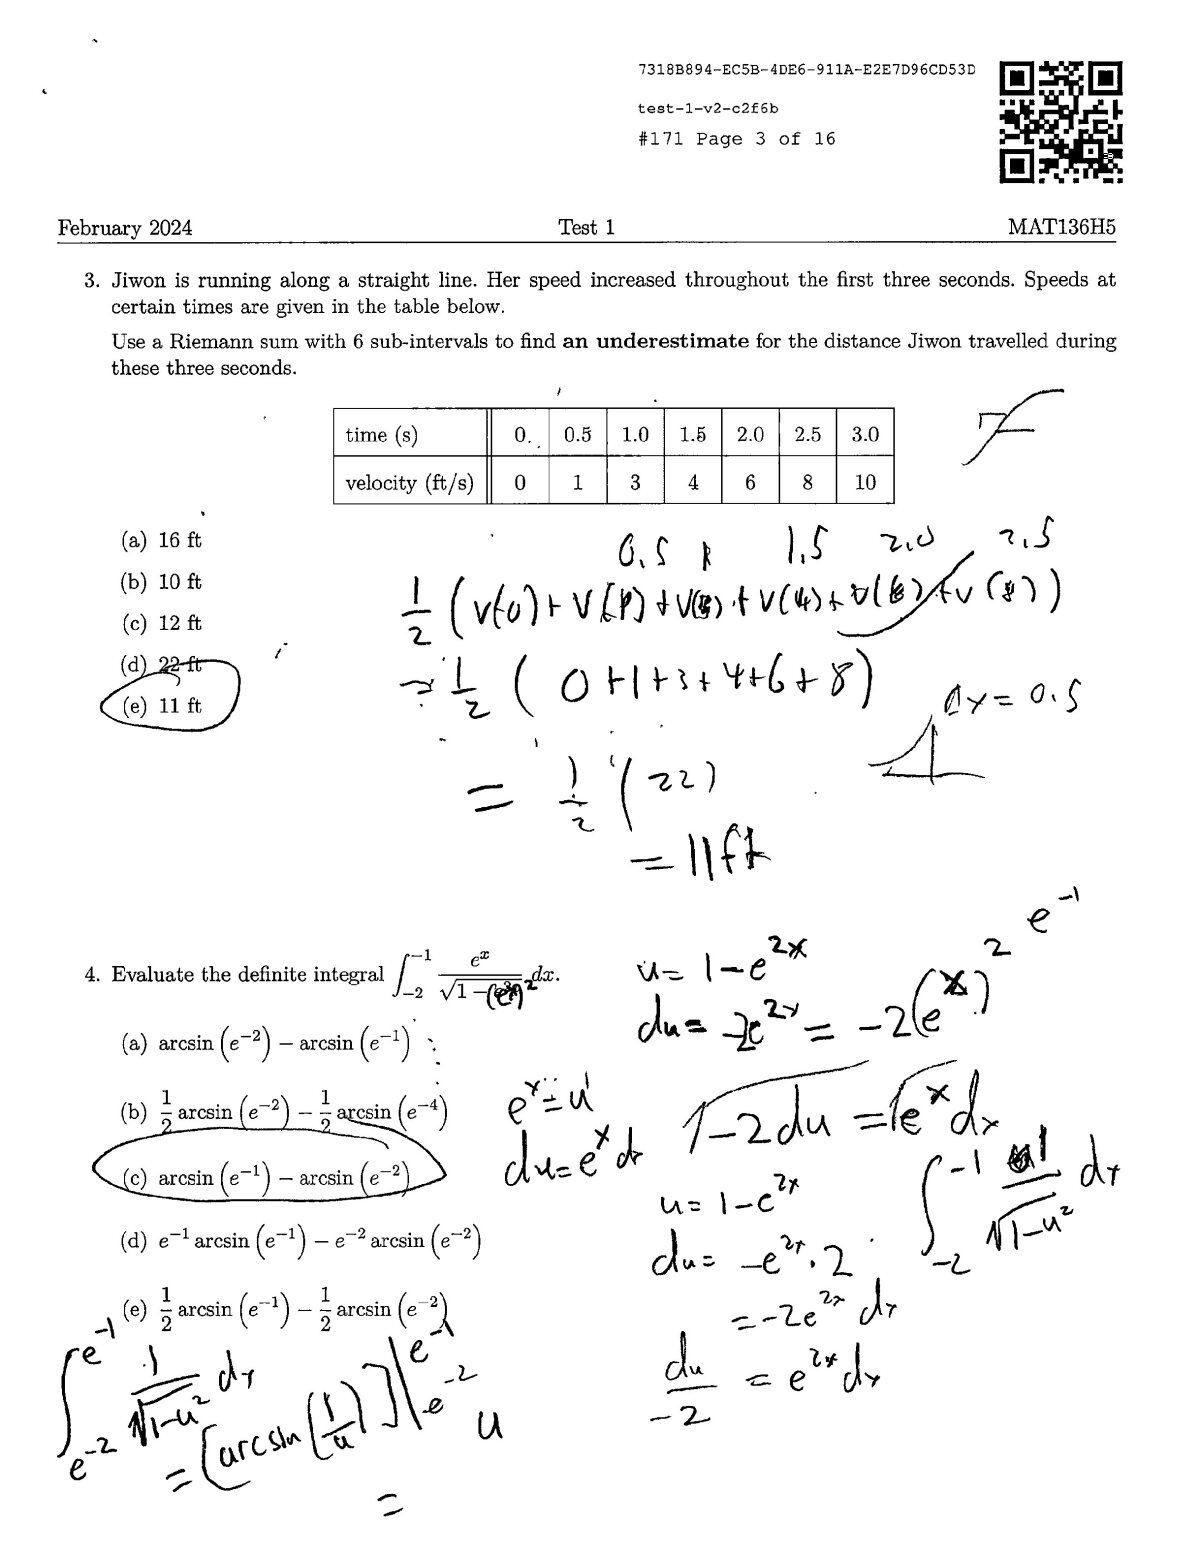 7318B894-EC5B-4DE6-911A-E2E7D96CD53D
test-1-v2-c2f6b
#171 Page 3 of 16
February 2024 Test 1 MAT136H5
3. Jiwon is running along a straight line. Her speed increased throughout the first three seconds. Speeds at
certain times are given in the table below.
Use a Riemann sum with 6 sub-intervals to find an underestimate for the distance Jiwon travelled during
these three seconds.
time (s) 0. 0.5 1.0 1.5 2.0 2.5 3.0
velocity (ft/s) 0 1 3 4 6 8 10
(a) 16 ft
(b) 10 ft
(c) 12 ft
(d) 22 ft
(e) 11 ft
0.5 1 1.5 2.0 2.5
1/2 (v(0) + v(1) + v(3) + v(4) + v(6) + v(8))
= 1/2 (0+1+3+4+6+8)
Δx = 0.5
= 1/2 (22)
= 11ft
4. Evaluate the definite integral ∫_{-2}^{-1} e^x/√(1-(e^x)^2) dx.
(a) arcsin (e^{-2}) − arcsin (e^{-1})
(b) 1/2 arcsin (e^{-2}) − 1/2 arcsin (e^{-4})
(c) arcsin (e^{-1}) − arcsin (e^{-2})
(d) e^{-1} arcsin (e^{-1}) − e^{-2} arcsin (e^{-2})
(e) 1/2 arcsin (e^{-1}) − 1/2 arcsin (e^{-2})
e^{-1}
u = 1-e^{2x}
du = -2e^{2x} = -2(e^x)^2
e^x = u
du = e^x dx
√(1-2du) = √(e^x dx)
u = 1-e^{2x}
du = -e^{2x}·2
= -2e^{2x} dx
du/-2 = e^{2x} dx
∫_{-2}^{-1} 1/√(1-u^2) dx
∫_{e^{-2}}^{e^{-1}} 1/√(1-u^2) dx
= [arcsin(1/u)]|_{e^{-2}}^{e^{-1}}
u
=